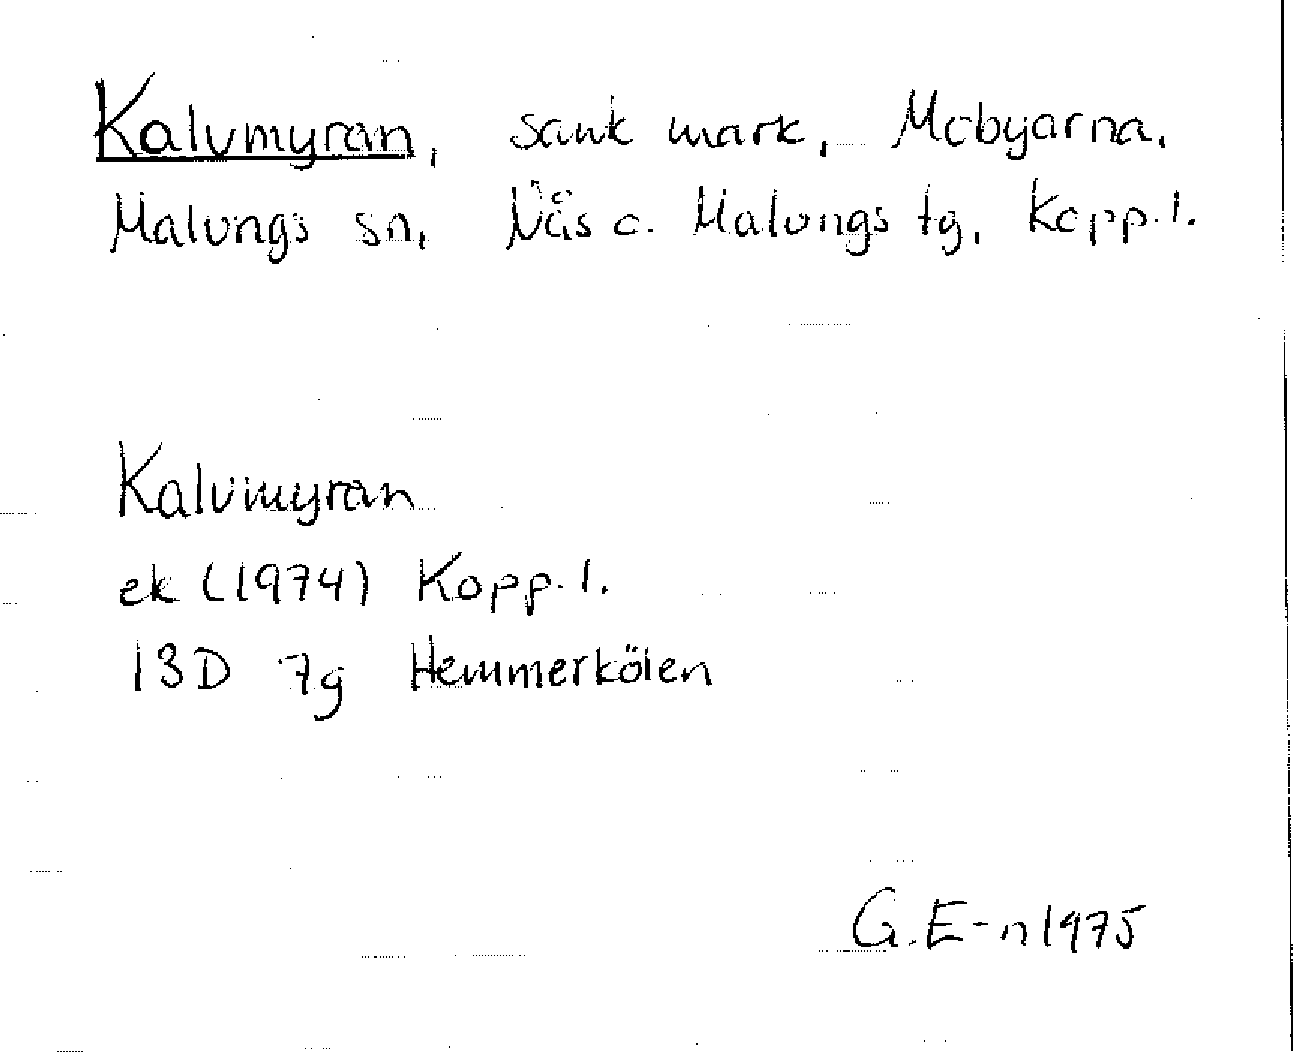 Kalvmyran, sank mark, Mobyarna,
Malungs sn, Näs o. Malungs tg, Kopp. l.
Kalvmyran
ek (1974) Kopp. l.
13D 7g Hemmerkölen
G.E-n 1975